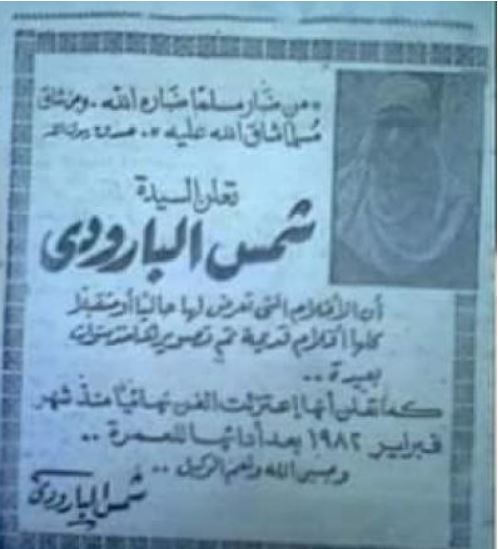 « من ضار مسلمًا ضاره الله . ومن شاق
مسلما شاق الله عليه » . صدق رسول الله
تعلن السيدة
شمس البارودى
أن الأفلام التى تعرض لها حاليًا أو مستقبلا
كلها أفلام قديمة تم تصويرها منذ سنوات
بعيدة ..
كما تعلن أنها إعتزلت الفن نهائيًا منذ شهر
فبراير ١٩٨٢ بعد أدائها للعمرة ..
وحسبى الله ونعم الوكيل ..
شمس البارودى